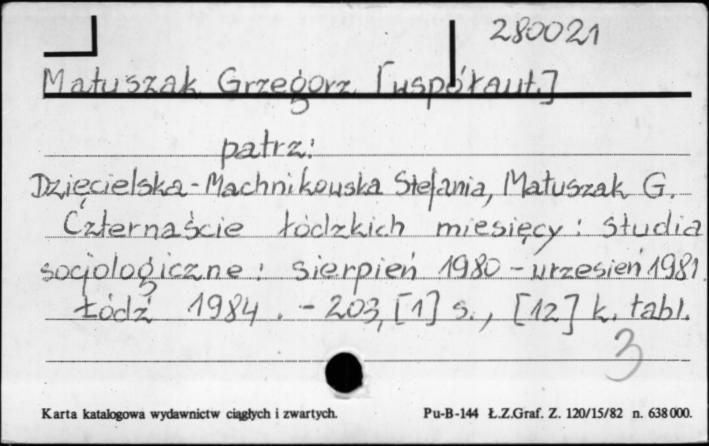 280021
Matuszak Grzegorz [współaut.]
patrz:
Dzięcielska-Machnikowska Stefania, Matuszak G.
Czternaście łódzkich miesięcy : studia
socjologiczne : sierpień 1980 - wrzesień 1981.
Łódź 1984. - 203, [1] s., [12] k. tabl.
3
Karta katalogowa wydawnictw ciągłych i zwartych. Pu-B-144 Ł.Z.Graf. Z. 120/15/82 n. 638 000.